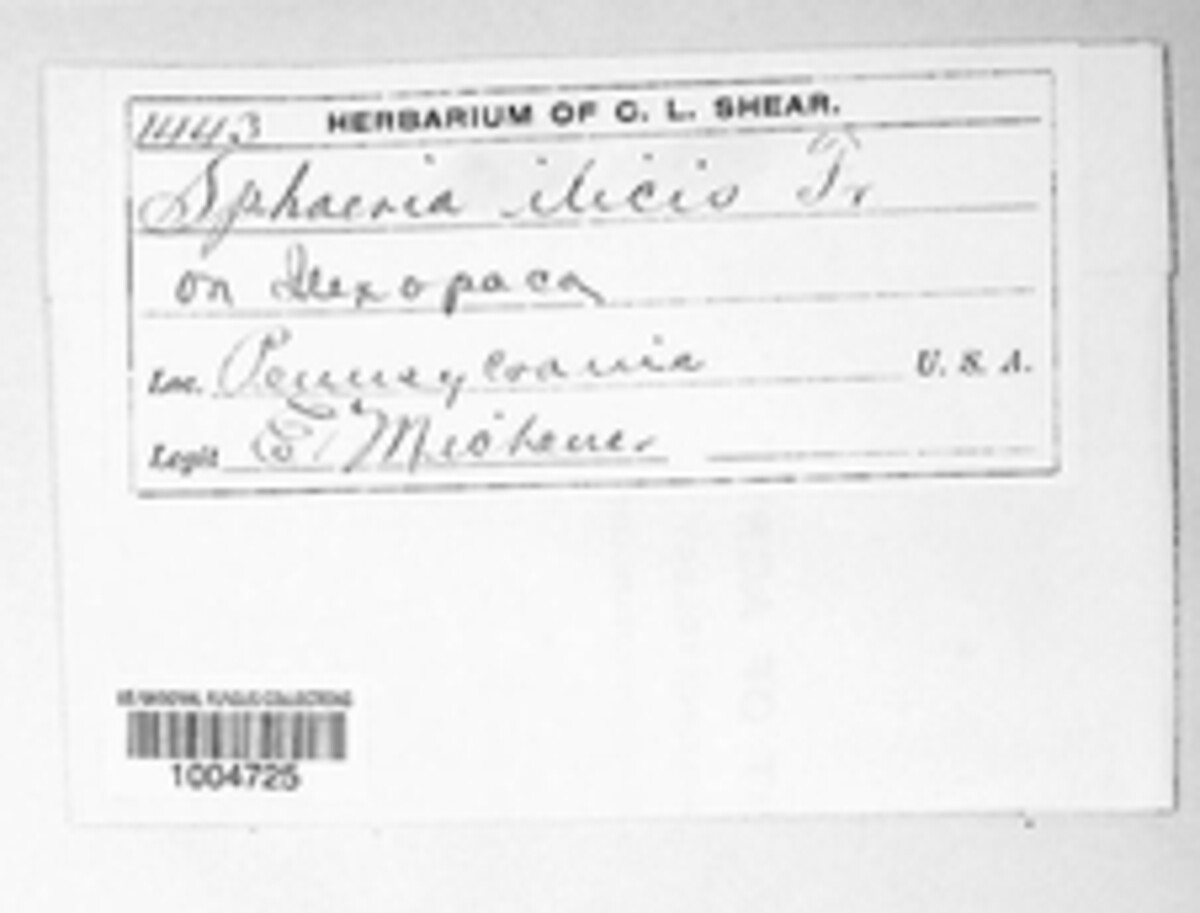 1443 HERBARIUM OF C. L. SHEAR.
Sphaeria ilicis Fr
on Ilex opaca
Loc. Pennsylvania U. S. A.
Legit E. Michener
US NATIONAL FUNGUS COLLECTIONS
1004725